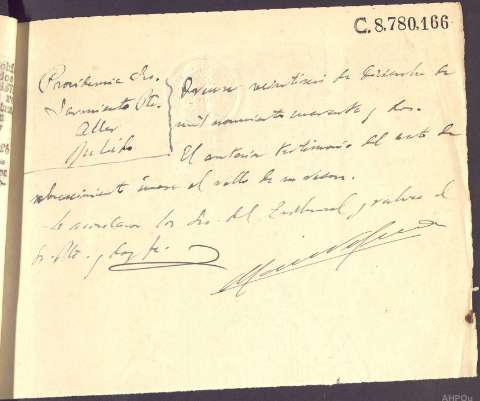 C.8.780.166
Providencia Sres.
Sarmiento Pte.
Aller
Pulido
Orense veintiseis de Diciembre de
mil novecientos cuarenta y dos.
El anterior testimonio del auto de
sobreseimiento únase al rollo de su razon.
Lo acordaron los Sres. del Tribunal y rubrica el
Sr. Pte. y doy fe.
AHPOu